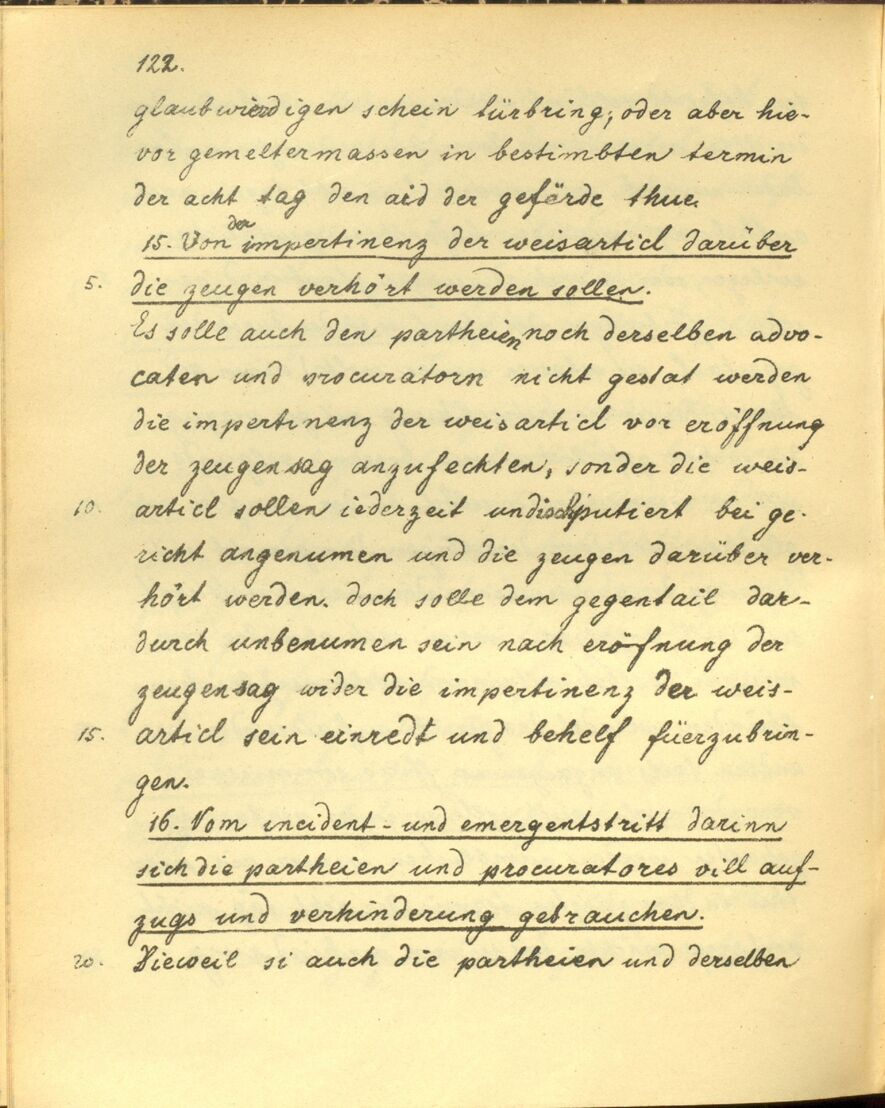 122.
glaubwierdigen schein fürbring, oder aber hie-
vor gemeltermassen in bestimbten termin
der acht tag den aid der gefërde thue.
15. Von der impertinenz der weisarticl darüber
5. die zeugen verhört werden sollen.
Es solle auch den partheien noch derselben advo-
caten und procuratorn nicht gestat werden
die impertinenz der weisarticl vor eröffnung
der zeugensag anzufechten, sonder die weis-
10. articl sollen iederzeit undisputiert bei ge-
richt angenumen und die zeugen darüber ver-
hört werden. doch solle dem gegentail dar-
durch unbenumen sein nach eröfnung der
zeugensag wider die impertinenz der weis-
15. articl sein einredt und behelf füerzubrin-
gen.
16. Vom incident- und emergentstritt darinn
sich die partheien und procuratores vill auf-
zugs und verhinderung gebrauchen.
20. Dieweil si auch die partheien und derselben